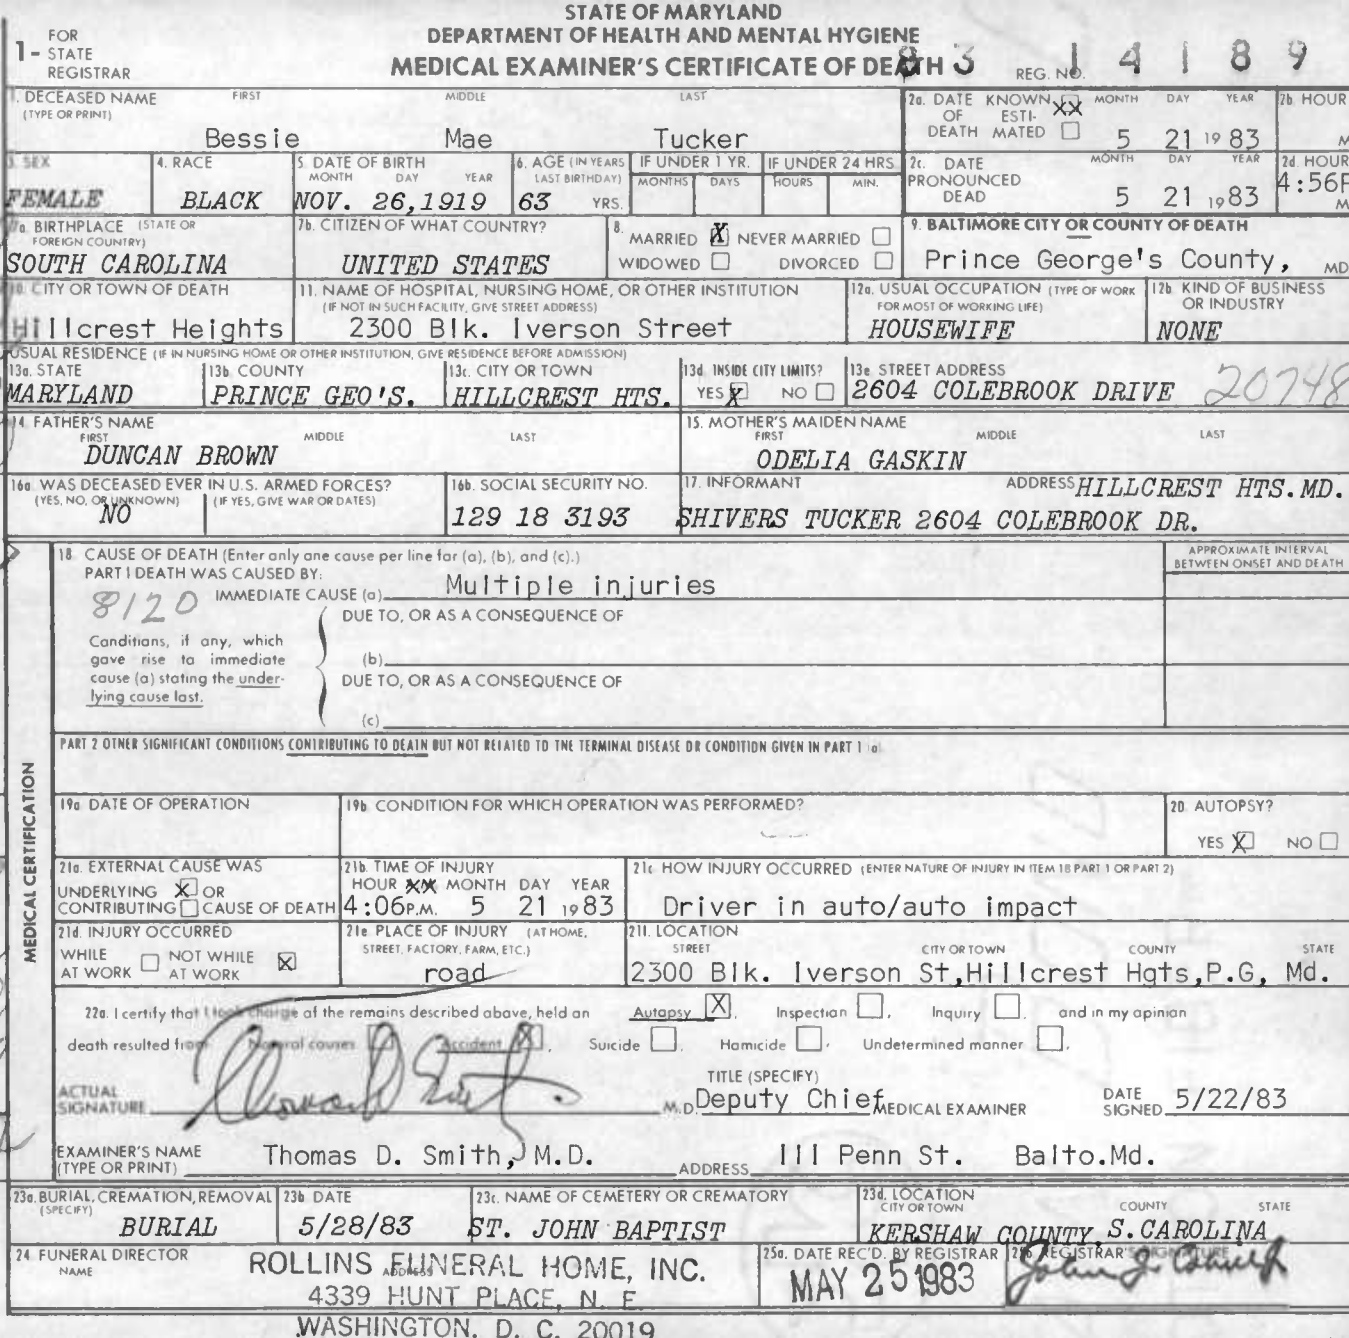 STATE OF MARYLAND
DEPARTMENT OF HEALTH AND MENTAL HYGIENE
MEDICAL EXAMINER'S CERTIFICATE OF DEATH
1- FOR STATE REGISTRAR
REG. NO. 83 14189
1. DECEASED NAME (TYPE OR PRINT) FIRST MIDDLE LAST
Bessie Mae Tucker
2a. DATE OF DEATH KNOWN XX ESTIMATED ☐ MONTH DAY YEAR 2b. HOUR
5 21 1983 M
3. SEX 4. RACE 5. DATE OF BIRTH MONTH DAY YEAR 6. AGE (IN YEARS LAST BIRTHDAY) IF UNDER 1 YR. MONTHS DAYS IF UNDER 24 HRS. HOURS MIN.
FEMALE BLACK NOV. 26,1919 63 YRS.
2c. DATE PRONOUNCED DEAD MONTH DAY YEAR 2d. HOUR
5 21 1983 4:56P M
7a. BIRTHPLACE (STATE OR FOREIGN COUNTRY) 7b. CITIZEN OF WHAT COUNTRY?
SOUTH CAROLINA UNITED STATES
8. MARRIED X NEVER MARRIED ☐
WIDOWED ☐ DIVORCED ☐
9. BALTIMORE CITY OR COUNTY OF DEATH
Prince George's County, MD
10. CITY OR TOWN OF DEATH
Hillcrest Heights
11. NAME OF HOSPITAL, NURSING HOME, OR OTHER INSTITUTION
(IF NOT IN SUCH FACILITY, GIVE STREET ADDRESS)
2300 Blk. Iverson Street
12a. USUAL OCCUPATION (TYPE OF WORK FOR MOST OF WORKING LIFE)
HOUSEWIFE
12b. KIND OF BUSINESS OR INDUSTRY
NONE
USUAL RESIDENCE (IF IN NURSING HOME OR OTHER INSTITUTION, GIVE RESIDENCE BEFORE ADMISSION)
13a. STATE 13b. COUNTY 13c. CITY OR TOWN 13d. INSIDE CITY LIMITS? 13e. STREET ADDRESS
MARYLAND PRINCE GEO'S. HILLCREST HTS. YES X NO ☐ 2604 COLEBROOK DRIVE 20748
14. FATHER'S NAME FIRST MIDDLE LAST
DUNCAN BROWN
15. MOTHER'S MAIDEN NAME FIRST MIDDLE LAST
ODELIA GASKIN
16a. WAS DECEASED EVER IN U.S. ARMED FORCES?
(YES, NO, OR UNKNOWN) (IF YES, GIVE WAR OR DATES)
NO
16b. SOCIAL SECURITY NO.
129 18 3193
17. INFORMANT ADDRESS HILLCREST HTS.MD.
SHIVERS TUCKER 2604 COLEBROOK DR.
MEDICAL CERTIFICATION
18. CAUSE OF DEATH (Enter only one cause per line for (a), (b), and (c).)
APPROXIMATE INTERVAL BETWEEN ONSET AND DEATH
PART I DEATH WAS CAUSED BY:
8120 IMMEDIATE CAUSE (a) Multiple injuries
DUE TO, OR AS A CONSEQUENCE OF
Conditions, if any, which gave rise to immediate cause (a) stating the underlying cause last.
(b)
DUE TO, OR AS A CONSEQUENCE OF
(c)
PART 2 OTHER SIGNIFICANT CONDITIONS CONTRIBUTING TO DEATH BUT NOT RELATED TO THE TERMINAL DISEASE OR CONDITION GIVEN IN PART 1 (a)
19a. DATE OF OPERATION 19b. CONDITION FOR WHICH OPERATION WAS PERFORMED?
20. AUTOPSY?
YES X NO ☐
21a. EXTERNAL CAUSE WAS
UNDERLYING X OR
CONTRIBUTING ☐ CAUSE OF DEATH
21b. TIME OF INJURY
HOUR XX MONTH DAY YEAR
4:06P.M. 5 21 1983
21c. HOW INJURY OCCURRED (ENTER NATURE OF INJURY IN ITEM 18 PART 1 OR PART 2)
Driver in auto/auto impact
21d. INJURY OCCURRED
WHILE AT WORK ☐ NOT WHILE AT WORK X
21e. PLACE OF INJURY (AT HOME, STREET, FACTORY, FARM, ETC.)
road
21f. LOCATION STREET CITY OR TOWN COUNTY STATE
2300 Blk. Iverson St,Hillcrest Hgts,P.G, Md.
22a. I certify that I took charge of the remains described above, held an Autopsy X, Inspection ☐, Inquiry ☐, and in my opinion
death resulted from Natural causes ☐, Accident X, Suicide ☐, Homicide ☐, Undetermined manner ☐.
ACTUAL SIGNATURE M.D.
TITLE (SPECIFY)
Deputy Chief MEDICAL EXAMINER
DATE SIGNED 5/22/83
EXAMINER'S NAME (TYPE OR PRINT) Thomas D. Smith, M.D. ADDRESS 111 Penn St. Balto.Md.
23a. BURIAL, CREMATION, REMOVAL (SPECIFY) 23b. DATE 23c. NAME OF CEMETERY OR CREMATORY 23d. LOCATION CITY OR TOWN COUNTY STATE
BURIAL 5/28/83 ST. JOHN BAPTIST KERSHAW COUNTY, S.CAROLINA
24. FUNERAL DIRECTOR
NAME ADDRESS
ROLLINS FUNERAL HOME, INC.
4339 HUNT PLACE, N. E.
WASHINGTON, D. C. 20019
25a. DATE REC'D. BY REGISTRAR 25b. REGISTRAR'S SIGNATURE
MAY 25 1983